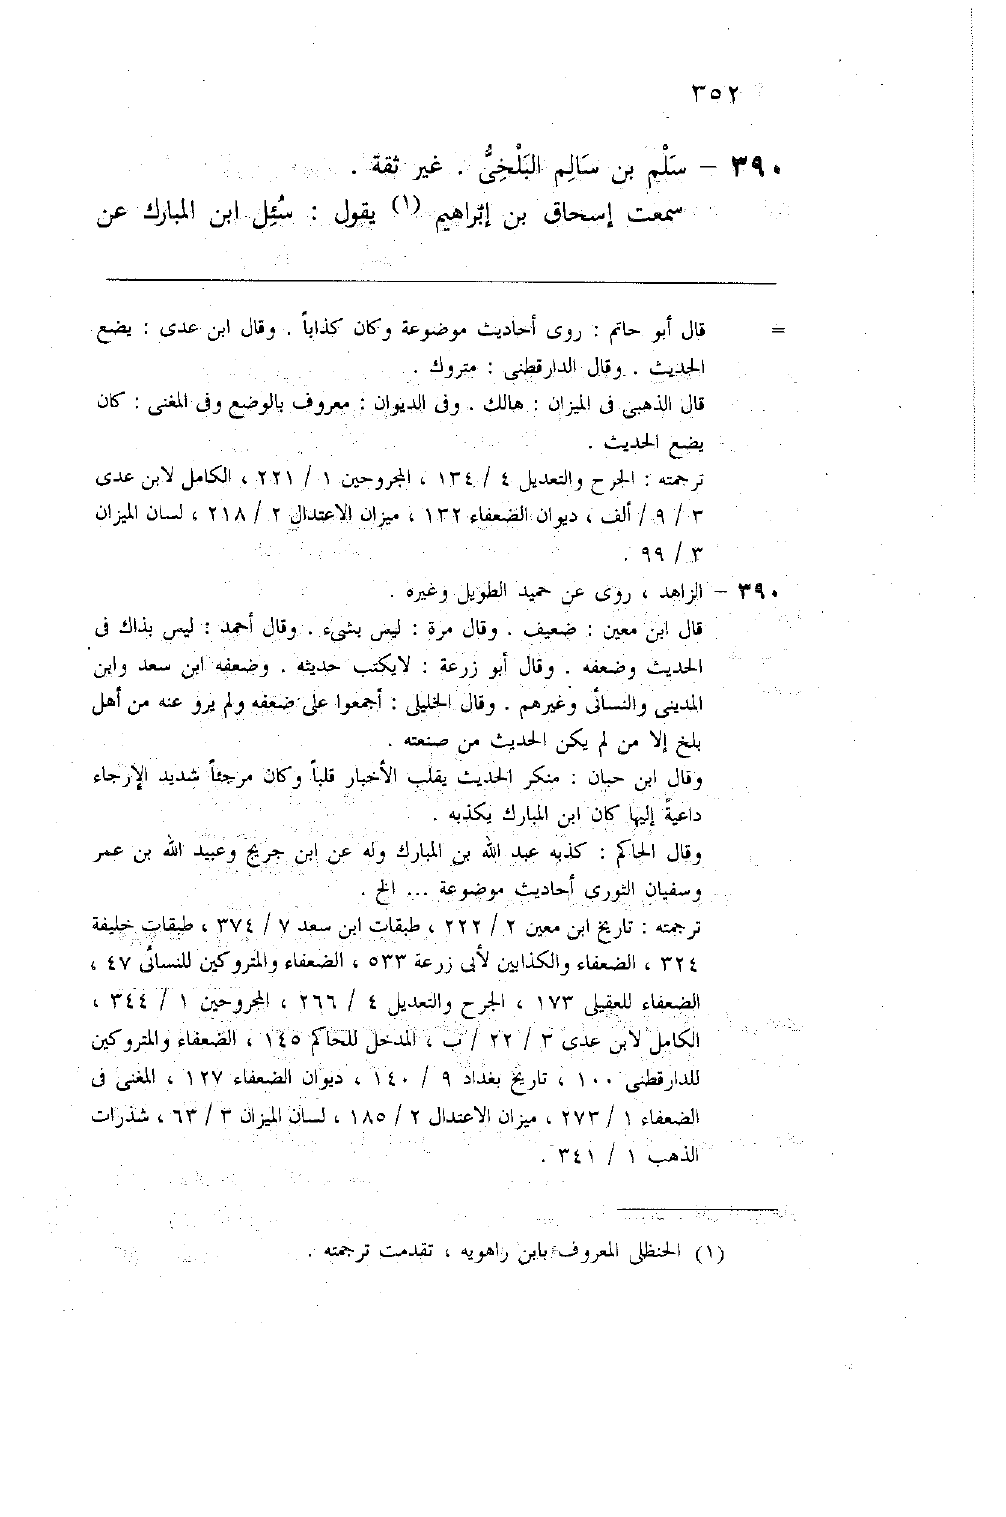 ٣٥٢
٣٩٠ – سَلْم بن سَالِم البَلْخِىُّ . غير ثقة .
سمعت إسحاق بن إبْراهيم (١) يقول : سُئِل ابن المبارك عن
= قال أبو حاتم : روى أحاديث موضوعة وكان كذاباً . وقال ابن عدى : يضع
الحديث . وقال الدارقطنى : متروك .
قال الذهبى فى الميزان : هالك . وفى الديوان : معروف بالوضع وفى المغنى : كان
يضع الحديث .
ترجمته : الجرح والتعديل ٤ / ١٣٤ ، المجروحين ١ / ٢٢١ ، الكامل لابن عدى
٣ / ٩ / ألف ، ديوان الضعفاء ١٣٢ ، ميزان الاعتدال ٢ / ٢١٨ ، لسان الميزان
٣ / ٩٩ .
٣٩٠ – الزاهد ، روى عن حميد الطويل وغيره .
قال ابن معين : ضعيف . وقال مرة : ليس بشىء . وقال أحمد : ليس بذاك فى
الحديث وضعفه . وقال أبو زرعة : لايكتب حديثه . وضعفه ابن سعد وابن
المدينى والنسائى وغيرهم . وقال الخليلى : أجمعوا على ضعفه ولم يرو عنه من أهل
بلخ إلا من لم يكن الحديث من صنعته .
وقال ابن حبان : منكر الحديث يقلب الأخبار قلباً وكان مرجئاً شديد الإرجاء
داعيةً إليها كان ابن المبارك يكذبه .
وقال الحاكم : كذبه عبد الله بن المبارك وله عن ابن جريج وعبيد الله بن عمر
وسفيان الثورى أحاديث موضوعة ... الخ .
ترجمته : تاريخ ابن معين ٢ / ٢٢٢ ، طبقات ابن سعد ٧ / ٣٧٤ ، طبقات خليفة
٣٢٤ ، الضعفاء والكذابين لأبى زرعة ٥٣٣ ، الضعفاء والمتروكين للنسائى ٤٧ ،
الضعفاء للعقيلى ١٧٣ ، الجرح والتعديل ٤ / ٢٦٦ ، المجروحين ١ / ٣٤٤ ،
الكامل لابن عدى ٣ / ٢٢ / ب ، المدخل للحاكم ١٤٥ ، الضعفاء والمتروكين
للدارقطنى ١٠٠ ، تاريخ بغداد ٩ / ١٤٠ ، ديوان الضعفاء ١٢٧ ، المغنى فى
الضعفاء ١ / ٢٧٣ ، ميزان الاعتدال ٢ / ١٨٥ ، لسان الميزان ٣ / ٦٣ ، شذرات
الذهب ١ / ٣٤١ .
(١) الحنظلى المعروف بابن راهويه ، تقدمت ترجمته .